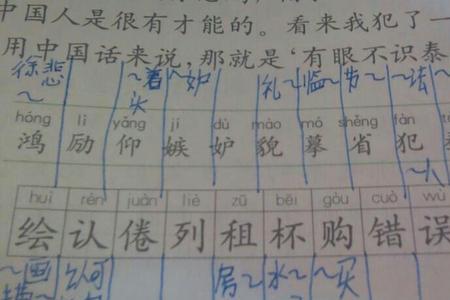 中国人是很有才能的。看来我犯了一
用中国话来说，那就是‘有眼不识泰
徐悲～ ～着头 ～妒 礼～ 临～ 节～ ～法
hóng lì yǎng jí dù mào mó shěng fàn
鸿 励 仰 嫉 妒 貌 摹 省 犯
～人
huì rèn juàn liè zū bēi gòu cuò wù
绘 认 倦 列 租 杯 购 错 误
～画 认可 房～ 水～ ～买
描～